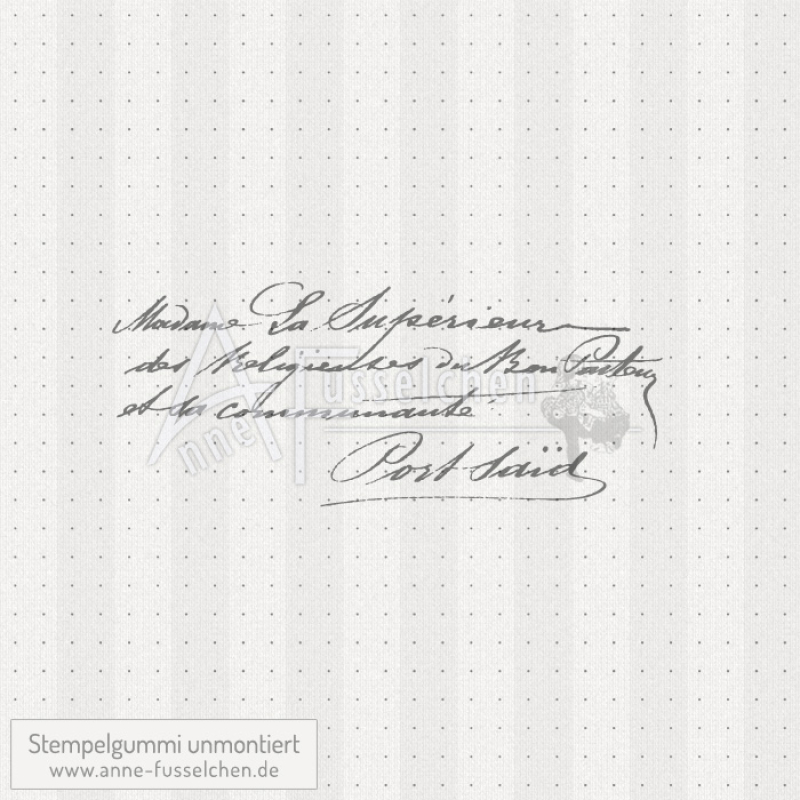 Madame La Supérieure
des Religieuses du Bon Pasteur
et sa communauté
Port Saïd
Anne Fusselchen
Stempelgummi unmontiert
www.anne-fusselchen.de